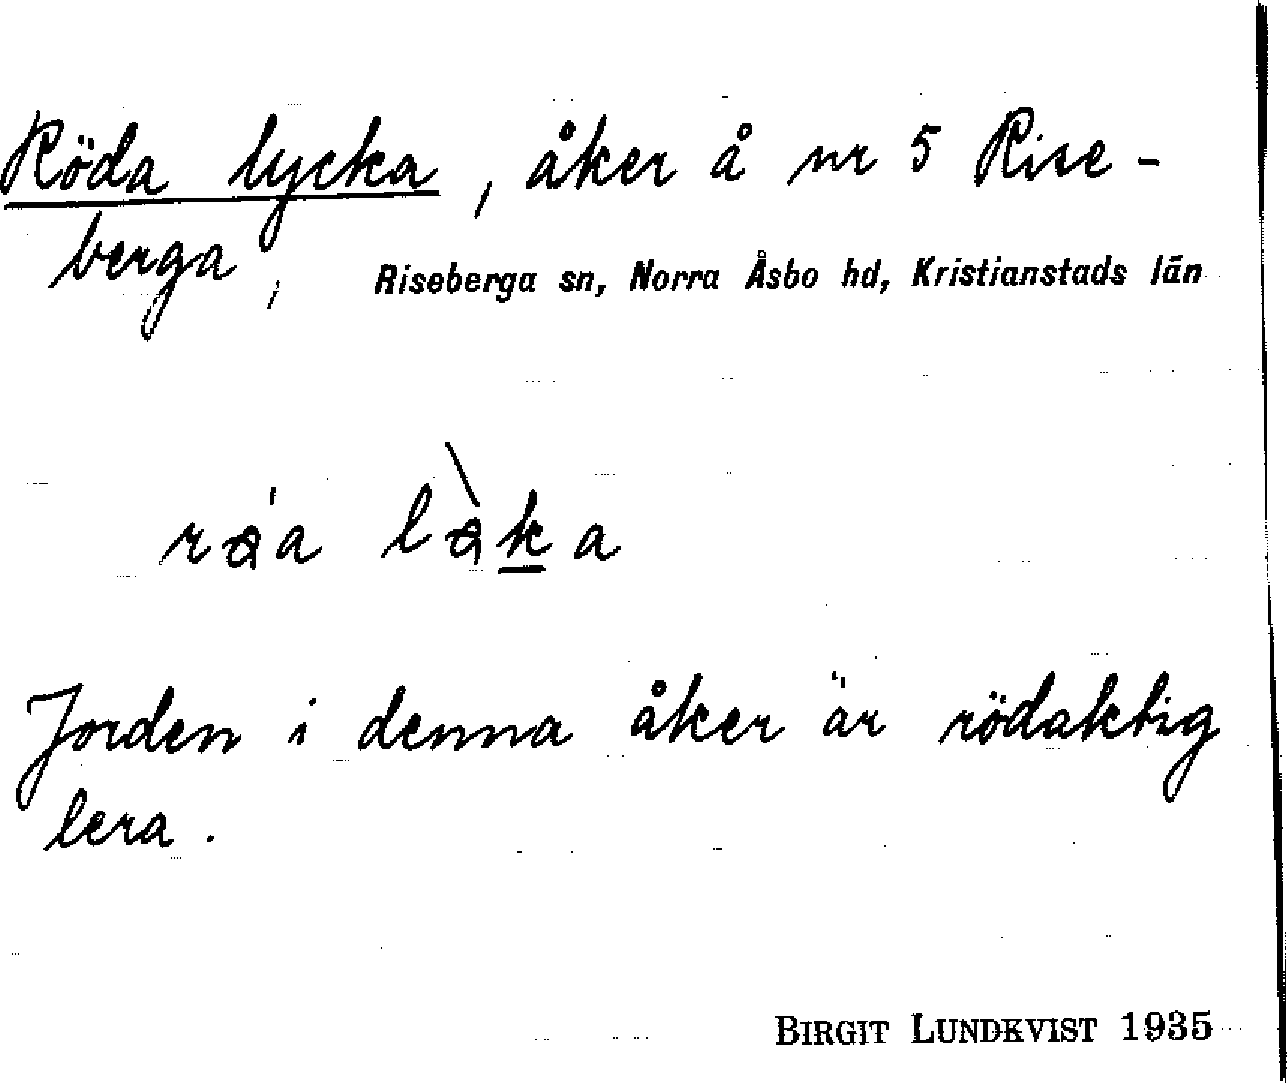 Röda lycka, åker å nr 5 Rise-
berga, Riseberga sn, Norra Åsbo hd, Kristianstads län
Jorden i denna åker är rödaktig
lera.
BIRGIT LUNDKVIST 1935